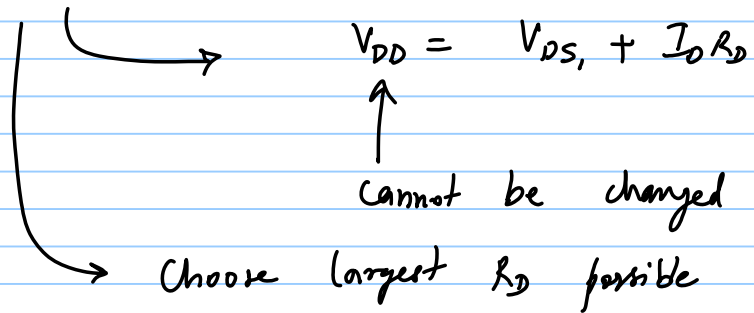 V_DD = V_DS₁ + I_D R_D
cannot be changed
Choose largest R_D possible